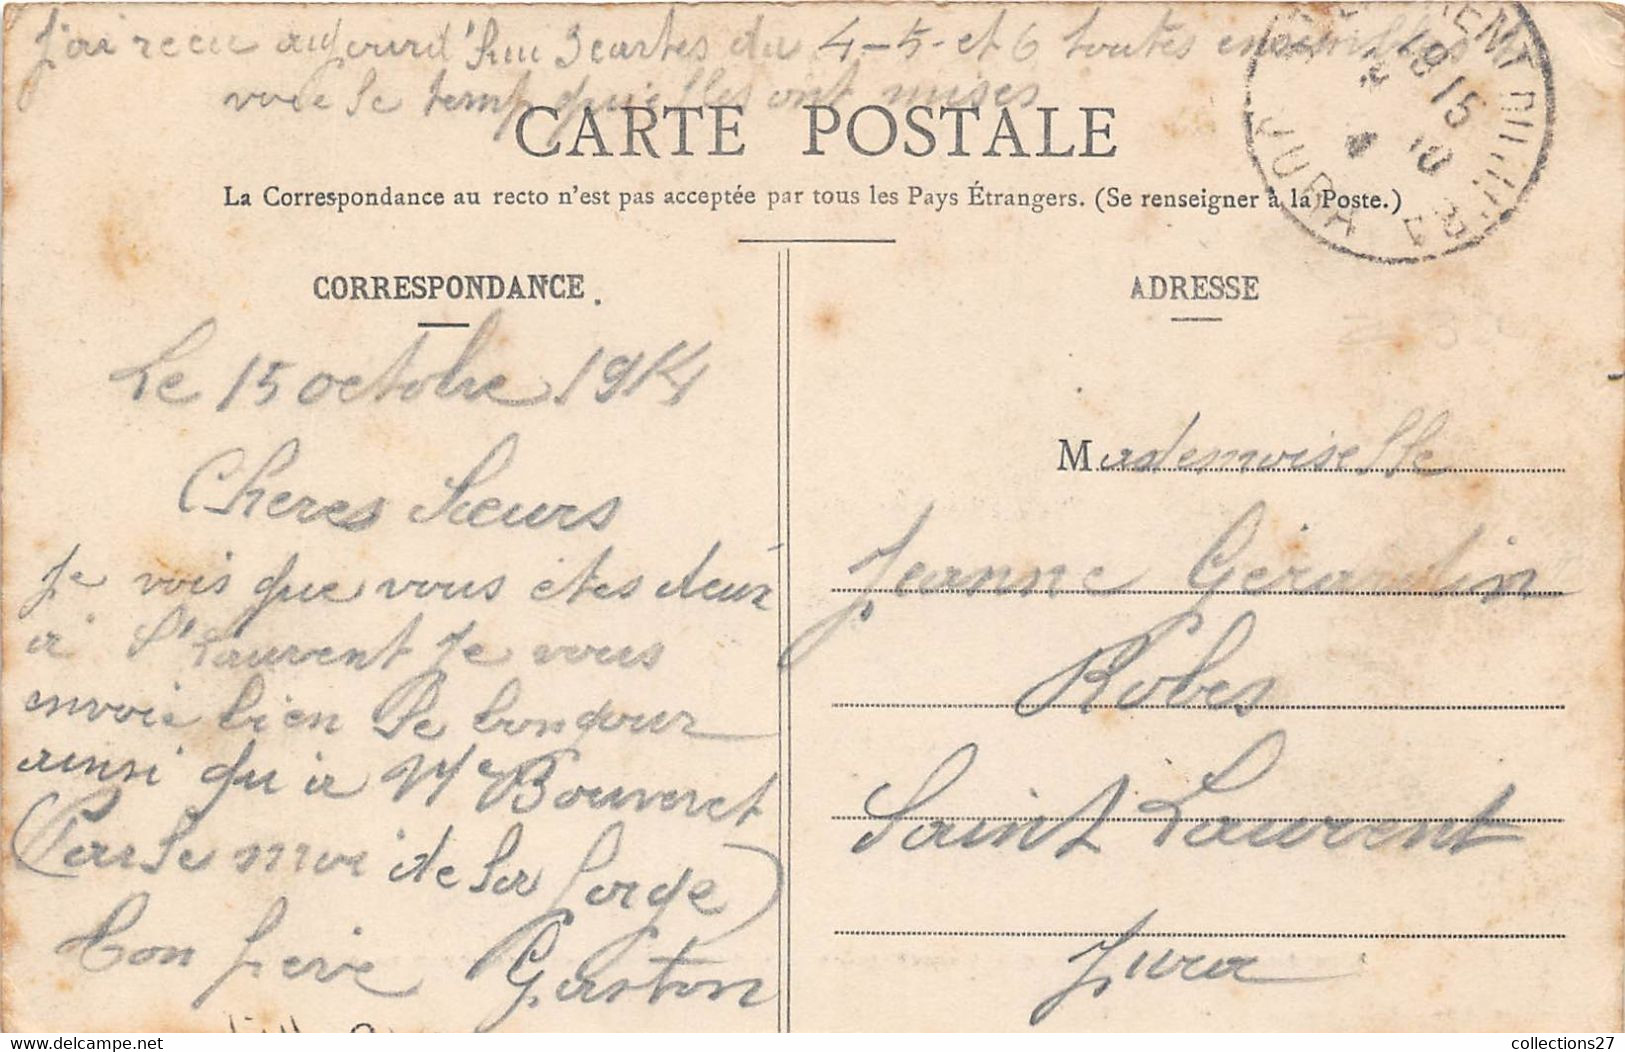 J'ai recu aujourd'hui 3 cartes du 4-5-et 6 toutes ensembles
voie le temp qu'elles ont mises
CARTE POSTALE
La Correspondance au recto n'est pas acceptée par tous les Pays Étrangers. (Se renseigner à la Poste.)
CORRESPONDANCE
Le 15 octobre 1914
Cheres Sœurs
Je vois que vous etes deux
a St Laurent Je vous
envoie bien le bonjour
ainsi qu'a Me Bouveret
(Parle moi de la forge)
Ton frere Gaston
ADRESSE
Mademoiselle
Jeanne Gérardin
Robes
Saint Laurent
Jura
JURA
18 15
10
collections27